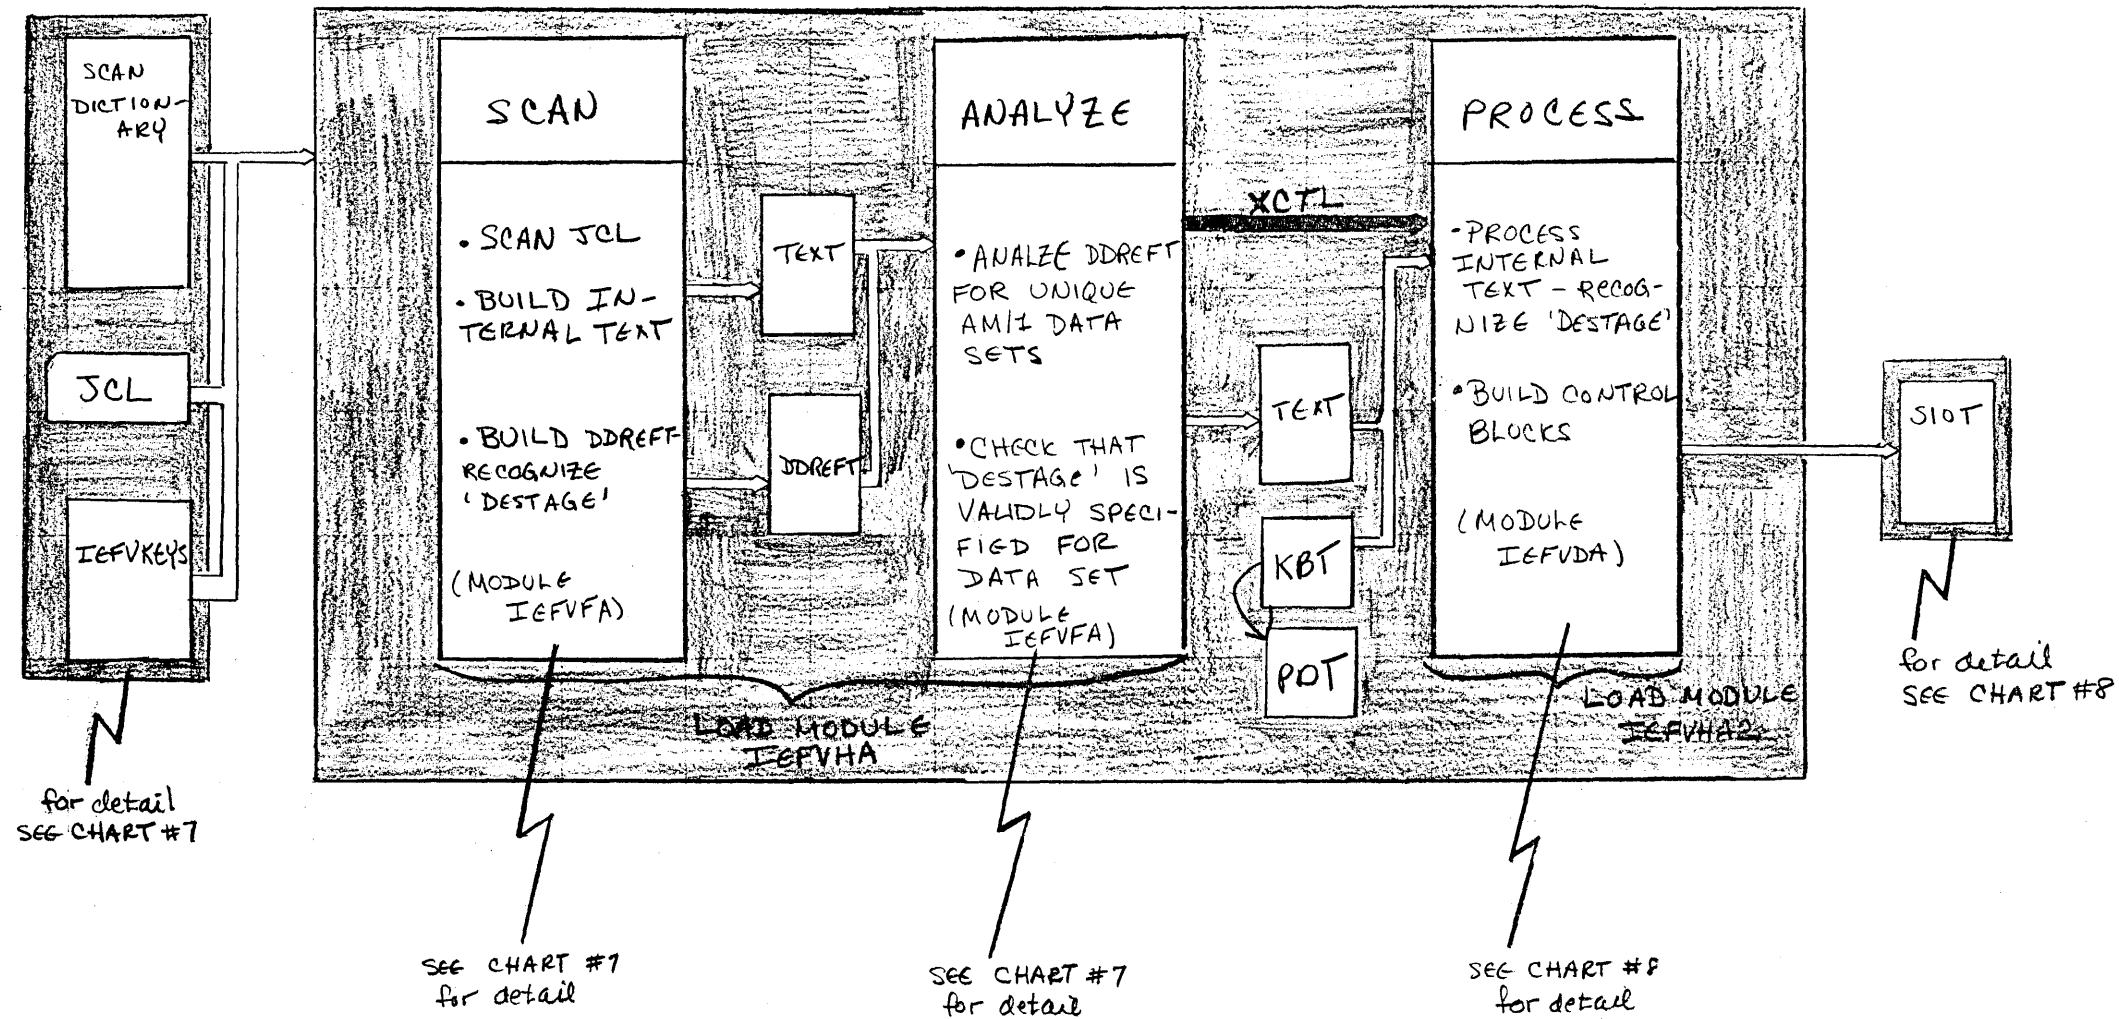 SCAN
DICTION-
ARY
JCL
IEFVKEYS
for detail
SEE CHART #7
SCAN
• SCAN JCL
• BUILD IN-
TERNAL TEXT
• BUILD DDREFT-
RECOGNIZE
'DESTAGE'
(MODULE
IEFVFA)
SEE CHART #7
for detail
TEXT
DDREFT
LOAD MODULE
IEFVHA
ANALYZE
• ANALZE DDREFT
FOR UNIQUE
AM/1 DATA
SETS
• CHECK THAT
'DESTAGE' IS
VALIDLY SPECI-
FIED FOR
DATA SET
(MODULE
IEFVFA)
SEE CHART #7
for detail
XCTL
TEXT
KBT
PDT
PROCESS
• PROCESS
INTERNAL
TEXT - RECOG-
NIZE 'DESTAGE'
• BUILD CONTROL
BLOCKS
(MODULE
IEFVDA)
LOAD MODULE
IEFVHA2
SEE CHART #8
for detail
SIOT
for detail
SEE CHART #8